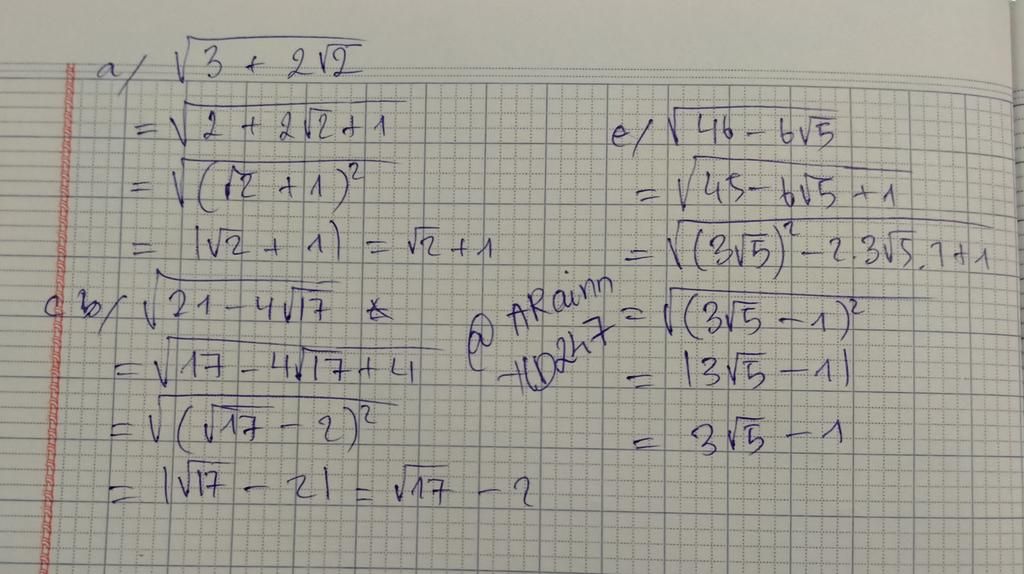 a/ √(3 + 2√2)
= √(2 + 2√2 + 1)
= √((√2 + 1)²)
= |√2 + 1| = √2 + 1
b/ √(21 - 4√17)
= √(17 - 4√17 + 4)
= √((√17 - 2)²)
= |√17 - 2| = √17 - 2
@ ARainn
HD247
e/ √(46 - 6√5)
= √(45 - 6√5 + 1)
= √((3√5)² - 2.3√5.1 + 1)
= √((3√5 - 1)²)
= |3√5 - 1|
= 3√5 - 1